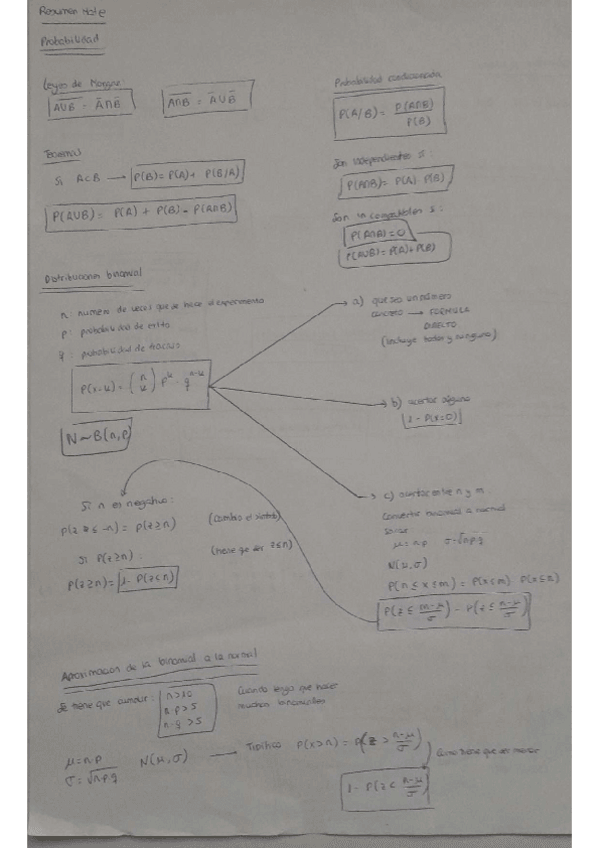 Resumen Mate
Probabilidad
Leyes de Morgan:
A̅U̅B̅ = A̅∩B̅
A̅∩̅B̅ = A̅∪B̅
Teoremas
Si A⊂B → P(B) = P(A) + P(B/A)
P(AUB) = P(A) + P(B) - P(A∩B)
Probabilidad condicionada
P(A/B) = P(A∩B) / P(B)
Son independientes si:
P(A∩B) = P(A) · P(B)
Son incompatibles si:
P(A∩B) = 0
P(AUB) = P(A) + P(B)
Distribucion binomial
n: numero de veces que se hace el experimento
p: probabilidad de exito
q: probabilidad de fracaso
N ~ B(n,p)
a) que sea un número
concreto → FORMULA
DIRECTO
(incluye todos y ninguno)
b) acertar alguno
1 - P(x=0)
c) acertar entre n y m
Convertir binomial a normal
μ = n·p σ = √n·p·q
N(μ,σ)
P(z ≤ m-μ/σ) - P(z ≤ n-μ/σ)
Si n es negativo:
P(z ≤ -n) = P(z ≥ n)
Si P(z ≥ n):
(tiene que ser z≤n)
P(z ≥ n) = 1 - P(z ≤ n)
Aproximacion de la binomial a la normal
Se tiene que cumplir:
n·p > 5
n·q > 5
Cuando tengo que hacer
muchas binomiales
μ = n·p
σ = √n·p·q
N(μ,σ) → Tipifico P(x>n) = P(z > n-μ/σ)
Como tiene que ser menor
1 - P(z ≤ n-μ/σ)